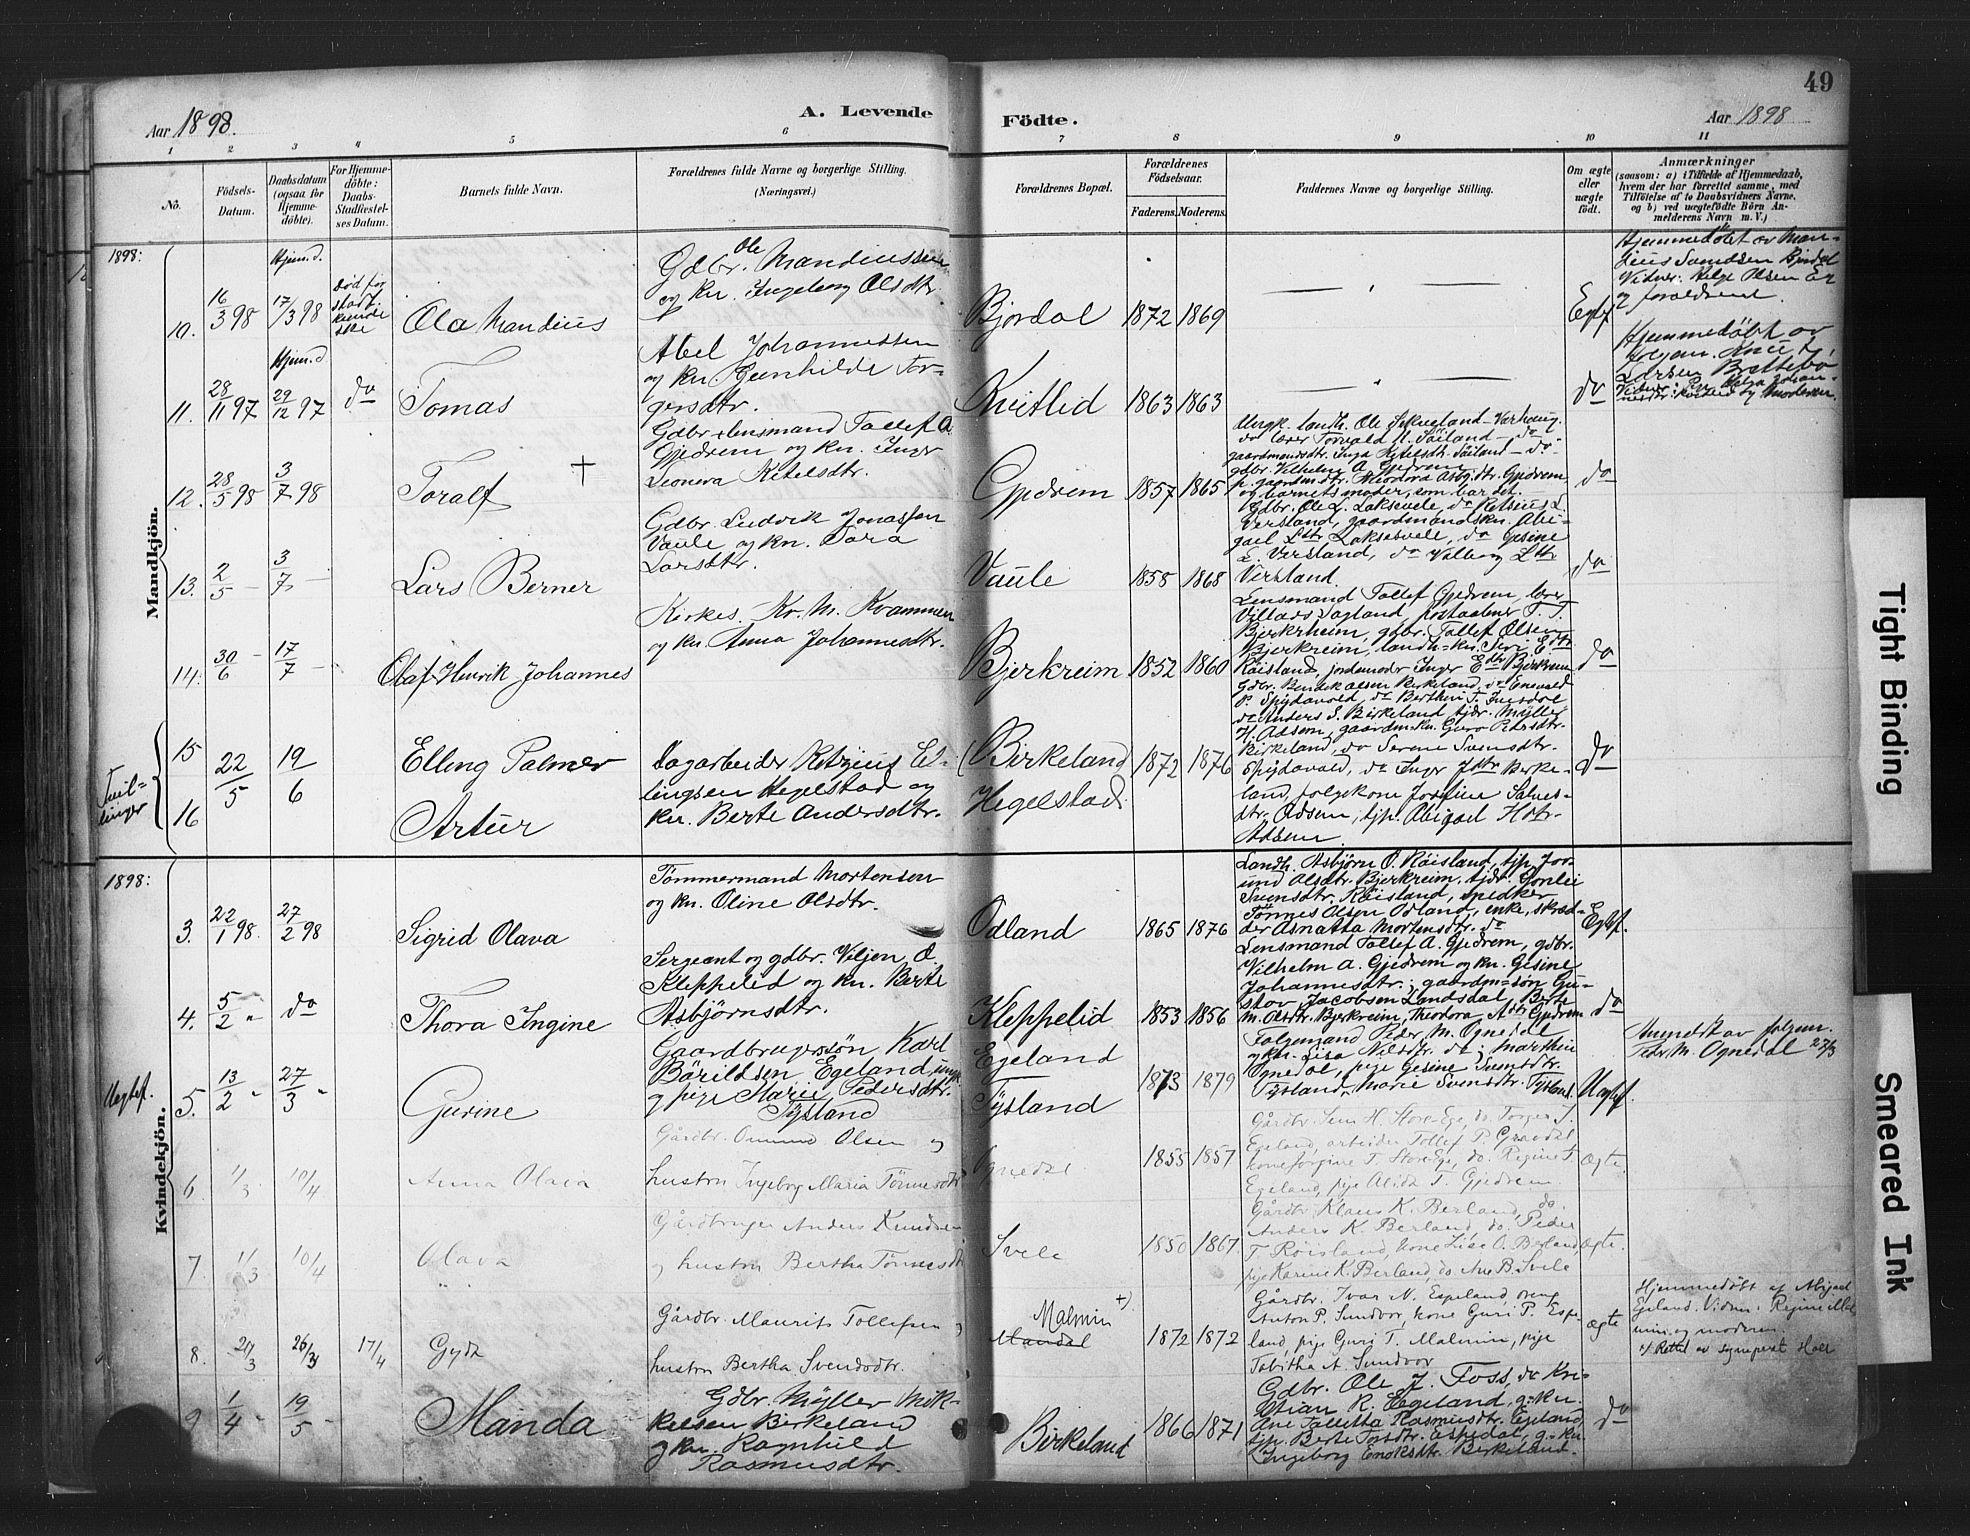 Aar 1898.
A. Levende
Födte.
Aar 1898
49
1 2 3 4 5 6 7 8 9 10 11
No.
Födsels-Datum.
Daabsdatum (ogsaa for Hjemmedöbte).
For Hjemmedöbte: Daabs-Stadfæstelses Datum.
Barnets fulde Navn.
Forældrenes fulde Navne og borgerlige Stilling.
(Næringsvei.)
Forældrenes Bopæl.
Forældrenes Födselsaar.
Faderens. Moderens.
Faddernes Navne og borgerlige Stilling.
Om ægte eller uægte födt.
Anmærkninger
(saasom: a) i Tilfælde af Hjemmedaab, hvem der har forrettet samme, med Tilföielse af to Daabsvidners Navne, og b) ved uægtefödte Börn Anmelderens Navn m. V.)
Mandkjön.
1898:
10. 16/3 98 Hjem.d. 17/3 98 död før stadfæstelse
Ola Mandius
Gdbr. Ole Mandiussen
og kn. Ingeborg Olsdtr.
Bjordal 1872 1869
Egtef.
Hjemmedöbt av
Vidner: Helge Olsen
og forældrene.
11. 28/11 97 Hjem.d. 29/12 97 do
Tomas
Abel Johannessen
og kn. Gunhilde Tor-
gersdtr.
Kvitlid 1863 1863
do
Hjemmedöbt av
Knut
Larsen Brattebö
12. 28/5 98 3/7 98
Toralf †
Gdbr. & lensmand Tollef A.
Gjedrem og kn. Inger
Leonora Ketelsdtr.
Gjedrem 1857 1865
gdbr. Vilhelm A. Gjedrem
og barnets moder, som bar det.
do
13. 2/5 – 3/7 –
Lars Berner
Gdbr. Ludvik Jonassen
Vaule og kn. Sara
Larsdtr.
Vaule 1858 1868
Gdbr. Ole L. Laksevele, do Retsius L.
Versland, gaardmandskn. Abi-
gael Ldtr Laksesvele, do Gesine
L. Versland, do Valborg Ldtr
Versland.
do
14. 30/6 – 17/7 –
Olaf Henrik Johannes
Kirkes. Kr. M. Kvammen
og kn. Anna Johannesdtr.
Bjerkreim 1852 1860
Lensmand Tollef Gjedrem, lærer
Villads Sagland, postaabner T. T.
Bjerkrheim, gdbr. Tollef Olsen
Bjerkreim, landh-kn. Siri Edtr
Röisland, jordmoder Inger Edtr Bjerkrem
do
Tvil-
linger
15
16
22/5 19/6
Elling Palmer
Artur
Dagarbeider Retzius El-
lingsen Hegelstad og
kn. Berte Andersdtr.
(Birkeland
Hegelstad) 1872 1876
Gdbr. Bendik Olsen Birkeland, do Enevald
P. Spjødevold, do Berthin T. Ivesdal
do Anders S. Birkeland, tjdr. Myller
H. Adsem, gaardm-kn. Guro Pedersdtr.
Birkeland, do Serene Svensdtr.
Spjødevold, do Inger Jdtr Birke-
land, folgekone Josefine Salves-
dtr. Adsem, tjp. Abigael Hdtr.
Adsem
do
Kvindekjön.
1898:
3. 22/1 98. 27/2 98
Sigrid Olava
Tömmermand Mortensen
og kn. Oline Olsdtr.
Odland 1865 1876
Landh. Asbjörn O. Röisland, tjp. Jor-
und Olsdtr. Bjerkreim, tjdr. Gonlei
Svensdtr. Röisland,
Tönnes Olsen Odland, enke,
Asnatha Mortensdtr. do
Egtef.
4. 5/2 " do
Thora Ingine
Sergeant og gdbr. Veljen O.
Kleppelid og kn. Berte
Asbjörnsdtr.
Kleppelid 1853 1856
Lensmand Tollef A. Gjedrem, gdbr.
Vilhelm A. Gjedrem og kn. Gesine
Johannesdtr.; gaardm-sön Gu-
stav Jacobsen Landsdal, Berte
M. Olsdtr. Bjerkreim, Theodora Adtr Gjedrem
do
Uegtef.
5. 13/2 " 27/3 "
Gurine
Gaardbrugerssön Karl
Bärildsen Egeland, ungk
og pige Marie Pedersdtr.
Tysland
Egeland
Tysland 1873 1879
Folgemand Peder M. Ognedal
og kn. Lisa Nilsdtr. do, Marthin
Ognedal, pige Gesine Svensdtr.
Tysland, Marie Svensdtr. Tysland
Uegtef.
Anmeldt av folgem.
Peder M. Ognedal 27/3
6 1/3 10/4
Anna Olava
Gårdbr. Ommund Olsen og
hustru Ingeborg Maria Tönnesdtr
Ognedal 1855 1857
Gårdbr. Sem H. Store-Ege, do. Torger J.
Egeland, arbeider Tollef P. Gravdal,
kone Jorgine T. Store-Ege, do. Regine T.
Egeland, pige Alida T. Gjedrem
ægte
7 1/3 10/4
Olava
Gårdbruger Anders Knudsen
og hustru Bertha Tönnesdt
Svele 1850 1867
Gårdbr. Klaus K. Berland, do.
Anders K. Berland, do. Peder
T. Röisland, kone Lise O. Berland
pige Karine K. Berland, do Ane B. Svele
ægte.
8. 20/3 26/3 17/4
Gyda
Gårdbr. Maurits Tollefsen og
hustru Bertha Svendsdtr.
Malmin +)
Mandal 1872 1872
Gårdbr. Ivar N. Espeland, ung
Anton P. Sundvor, kone Guri P. Espe-
land, pige Guri T. Malmin, pige
Tabitha A. Sundvor
ægte
Hjemmedöbt af Abigael
Egeland. Vidner: Regine Mal-
min og moderen.
+) Rettet av sogneprest Hoel
9 1/4 – 19/5 –
Manda
Gdbr. Myller Mik-
kelsen Birkeland
og kn. Ragnhild
Rasmusdtr.
Birkeland 1866 1871
Gdbr. Ole J. Foss, do Kri-
stian R. Egeland, g-kn.
Ane Tallettha Rasmusdtr. Egeland,
tjp. Berte Tosdtr. Espedal, g-kn.
Ingeborg Enoksdtr. Birkeland.
do
Tight Binding
Smeared Ink